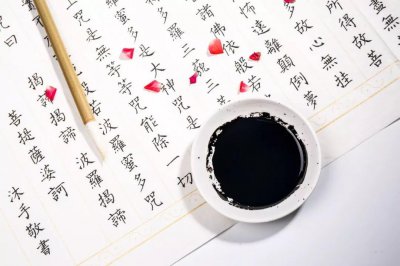 所得故菩
故心無罣
遠離顛倒夢
諸佛依般
羅三藐三
羅蜜多是大神咒是
無等等咒能除一切
般若波羅蜜多咒
曰
揭諦揭諦 波羅揭諦
菩提薩婆訶
沐手敬書